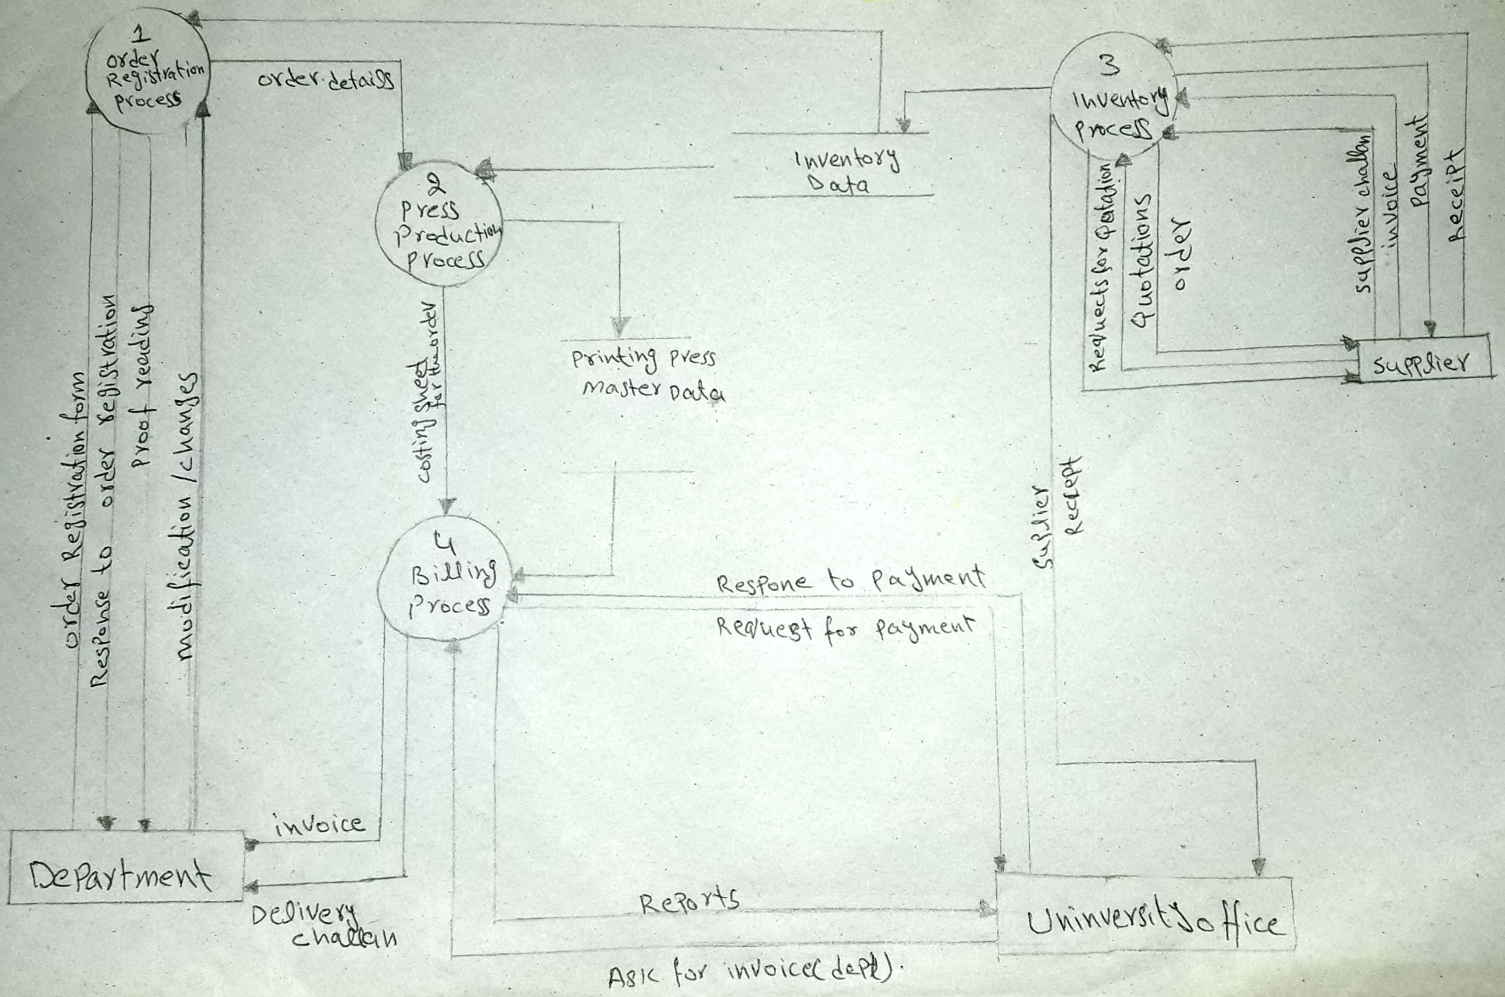 1
order
Registration
process
order details
2
press
Production
process
Inventory
Data
3
Inventory
process
Requects for Qotation
Quotations
order
supplier challan
invoice
payment
Receipt
supplier
printing press
master Data
costing sheet
for the order
4
Billing
process
order Registration form
Response to order registration
proof reading
modification/changes
Respone to payment
Request for payment
Suplier
Recept
invoice
Department
Delivery
challan
Reports
Uninversity office
Ask for invoice(dept).